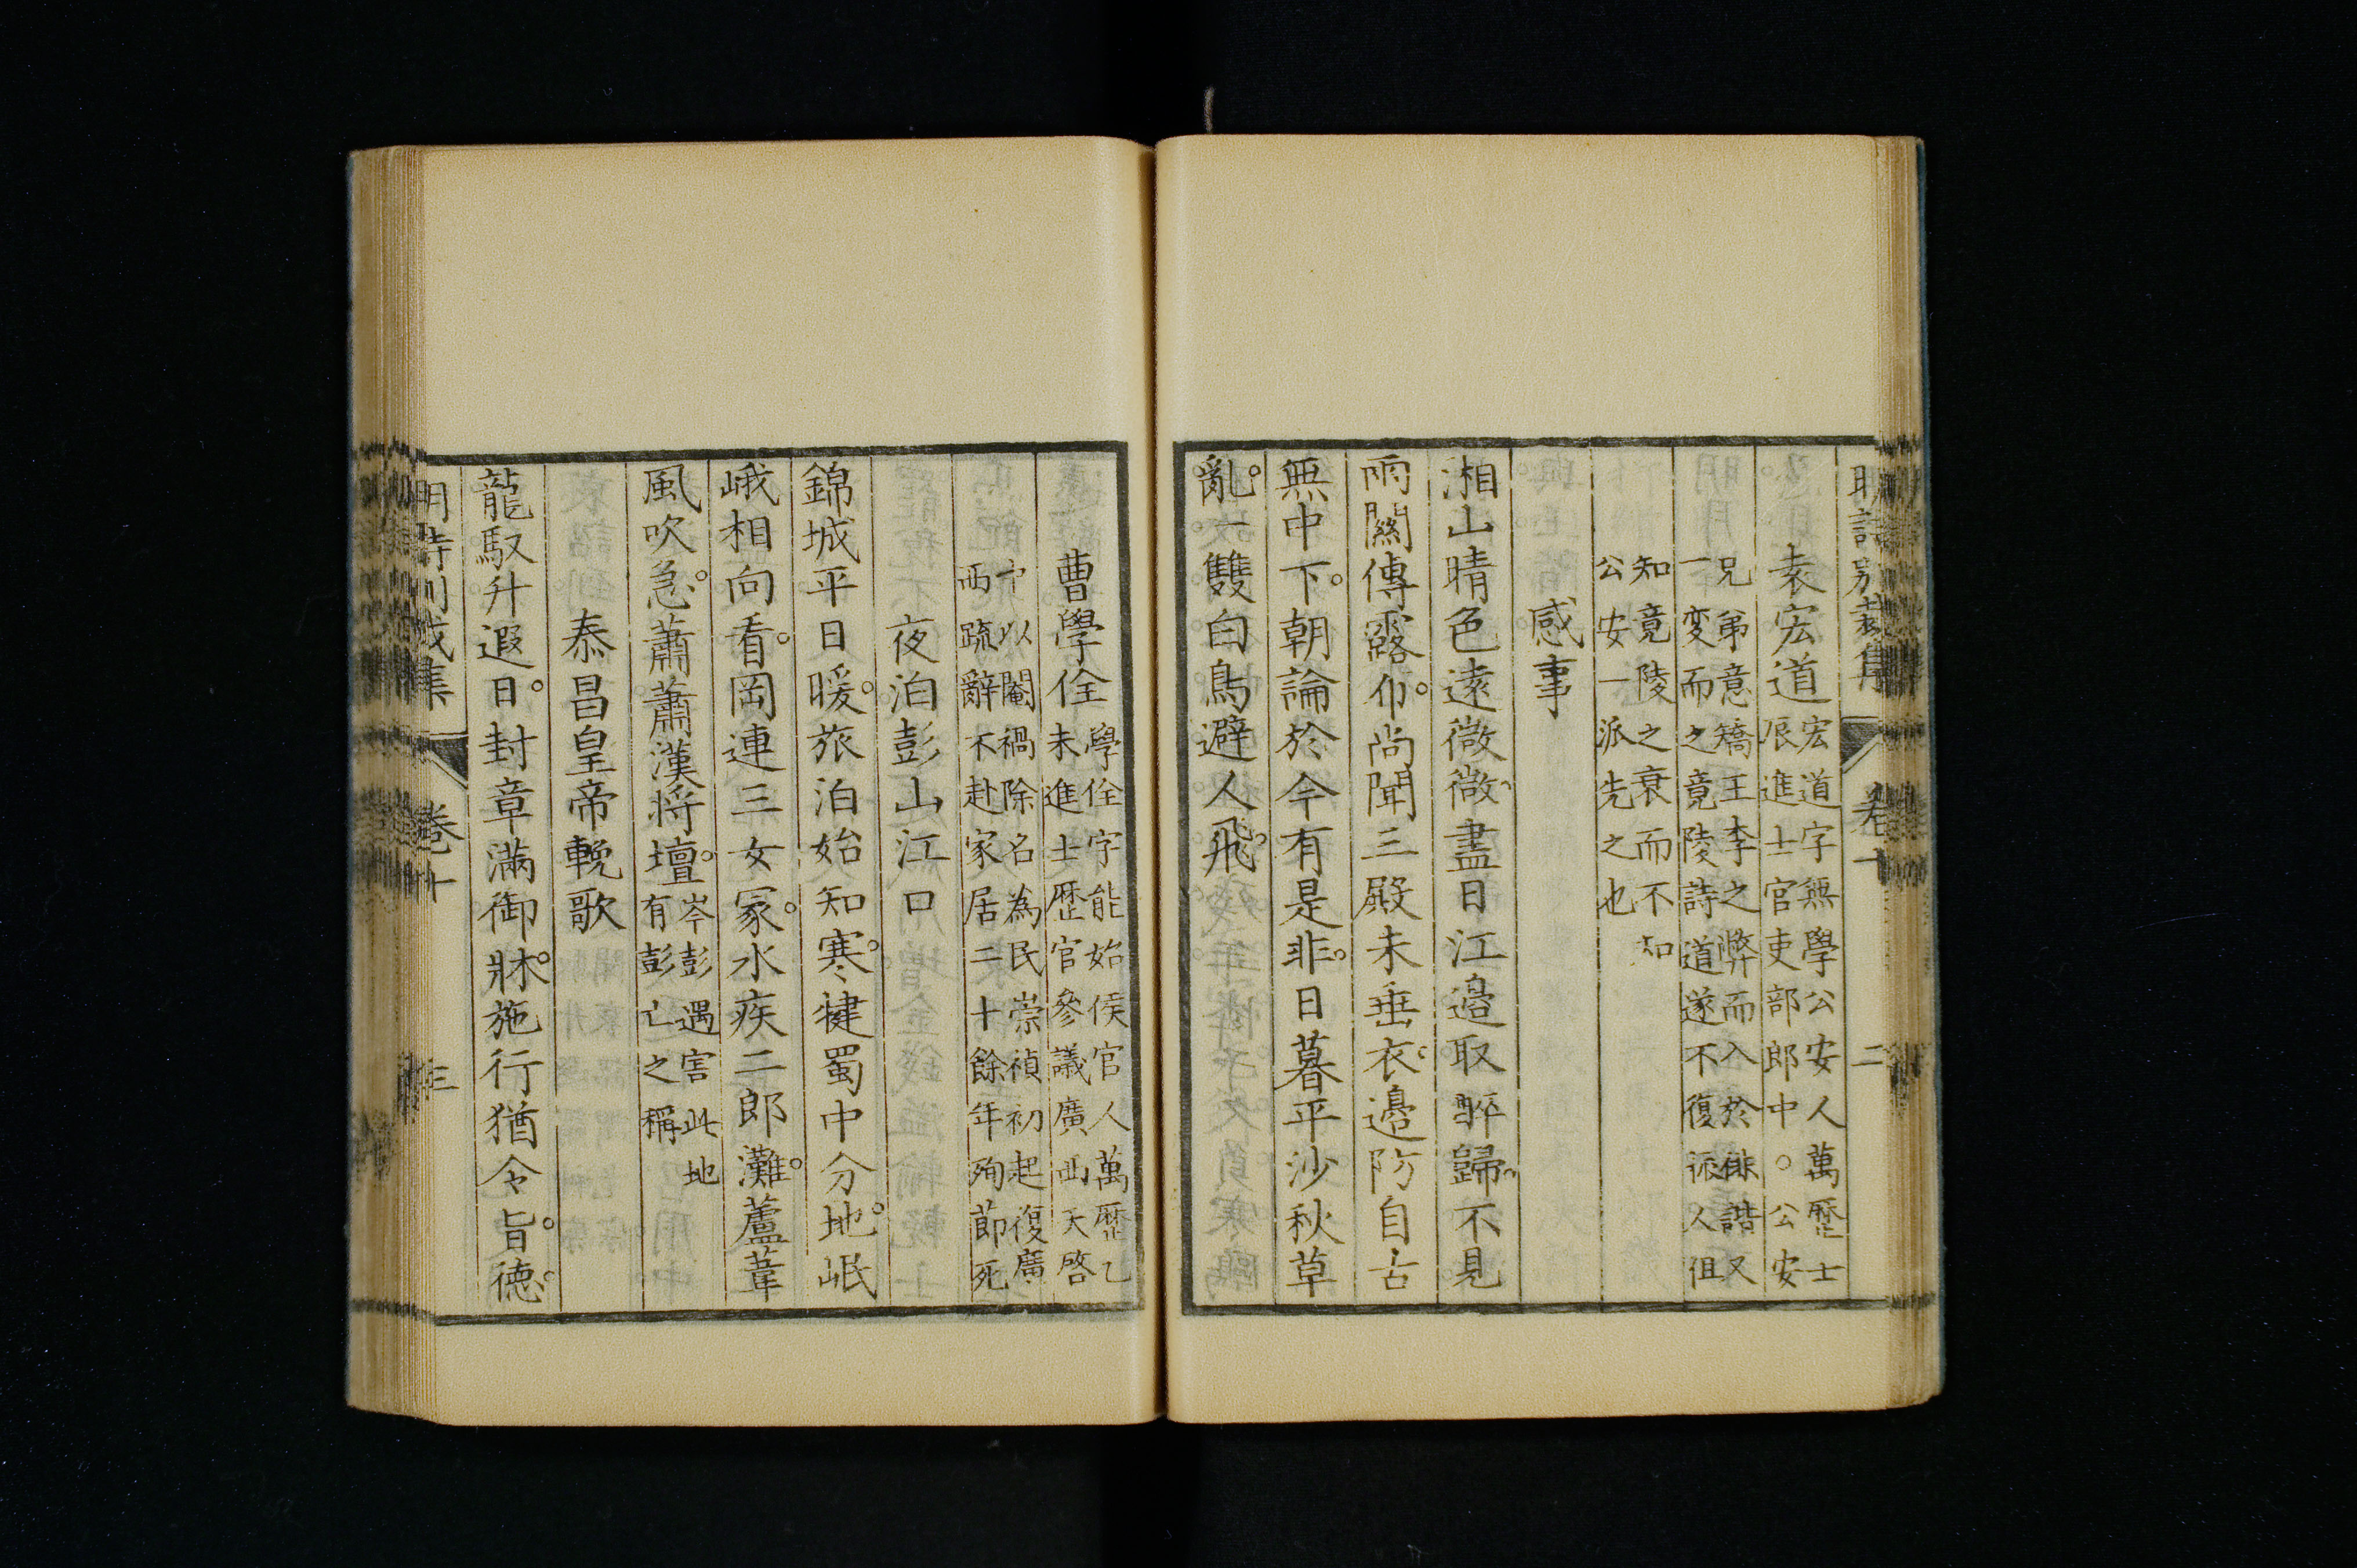 明詩別裁集 卷十 二
袁宏道
宏道字無學公安人萬歷壬
辰進士官吏部郎中○公安
兄弟意矯王李之弊而入於俳諧又
一変而之竟陵詩道遂不復振人但
知竟陵之衰而不知
公安一派先之也
感事
湘山晴色遠微微盡日江邉取醉歸不見
兩關傳露布尚聞三殿未垂衣邉防自古
無中下朝論於今有是非日暮平沙秋草
亂一雙白鳥避人飛
曹學佺
學佺字能始侯官人萬歷乙
未進士歷官參議廣西天啓
中以閹禍除名為民崇禎初起復廣
西疏辭不赴家居二十餘年殉節死
夜泊彭山江口
錦城平日暖旅泊始知寒犍蜀中分地岷
峨相向看岡連三女冢水疾二郎灘蘆葦
風吹急蕭蕭漢將壇
岑彭遇害此地
有彭亡之稱
泰昌皇帝輓歌
龍馭升遐日封章滿御牀施行猶令旨德
明詩別裁集 卷十 三